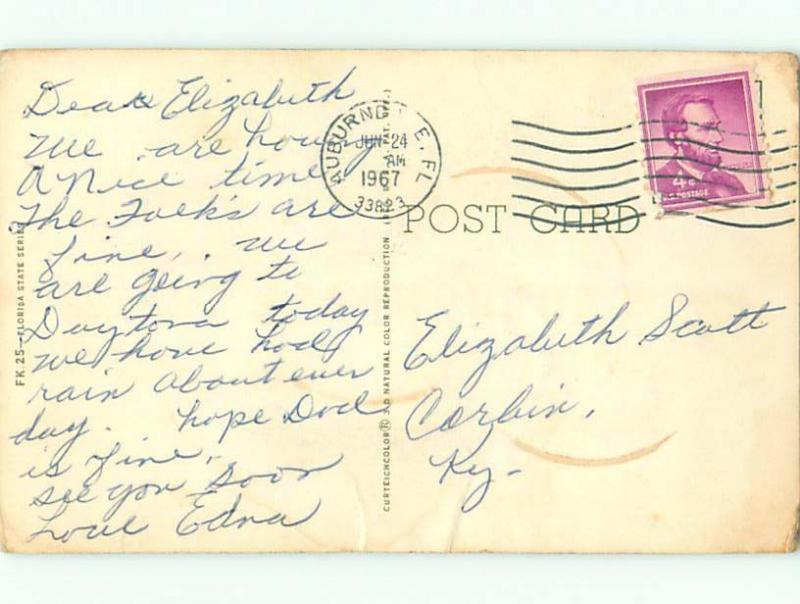 Dear Elizabeth
we are having
a nice time
The Folk's are
fine. we
are going to
Daytona today
we have had
rain about ever
day. hope Dad
is fine.
see you soon
Love Edna
FK.25—FLORIDA STATE SERIES
AUBURNDALE, FL
JUN 24
AM
1967
33823
CURTEICHCOLOR® 3-D NATURAL COLOR REPRODUCTION
PAT. OFF.)
POST CARD
4¢
U.S. POSTAGE
Elizabeth Scott
Corbin,
Ky-